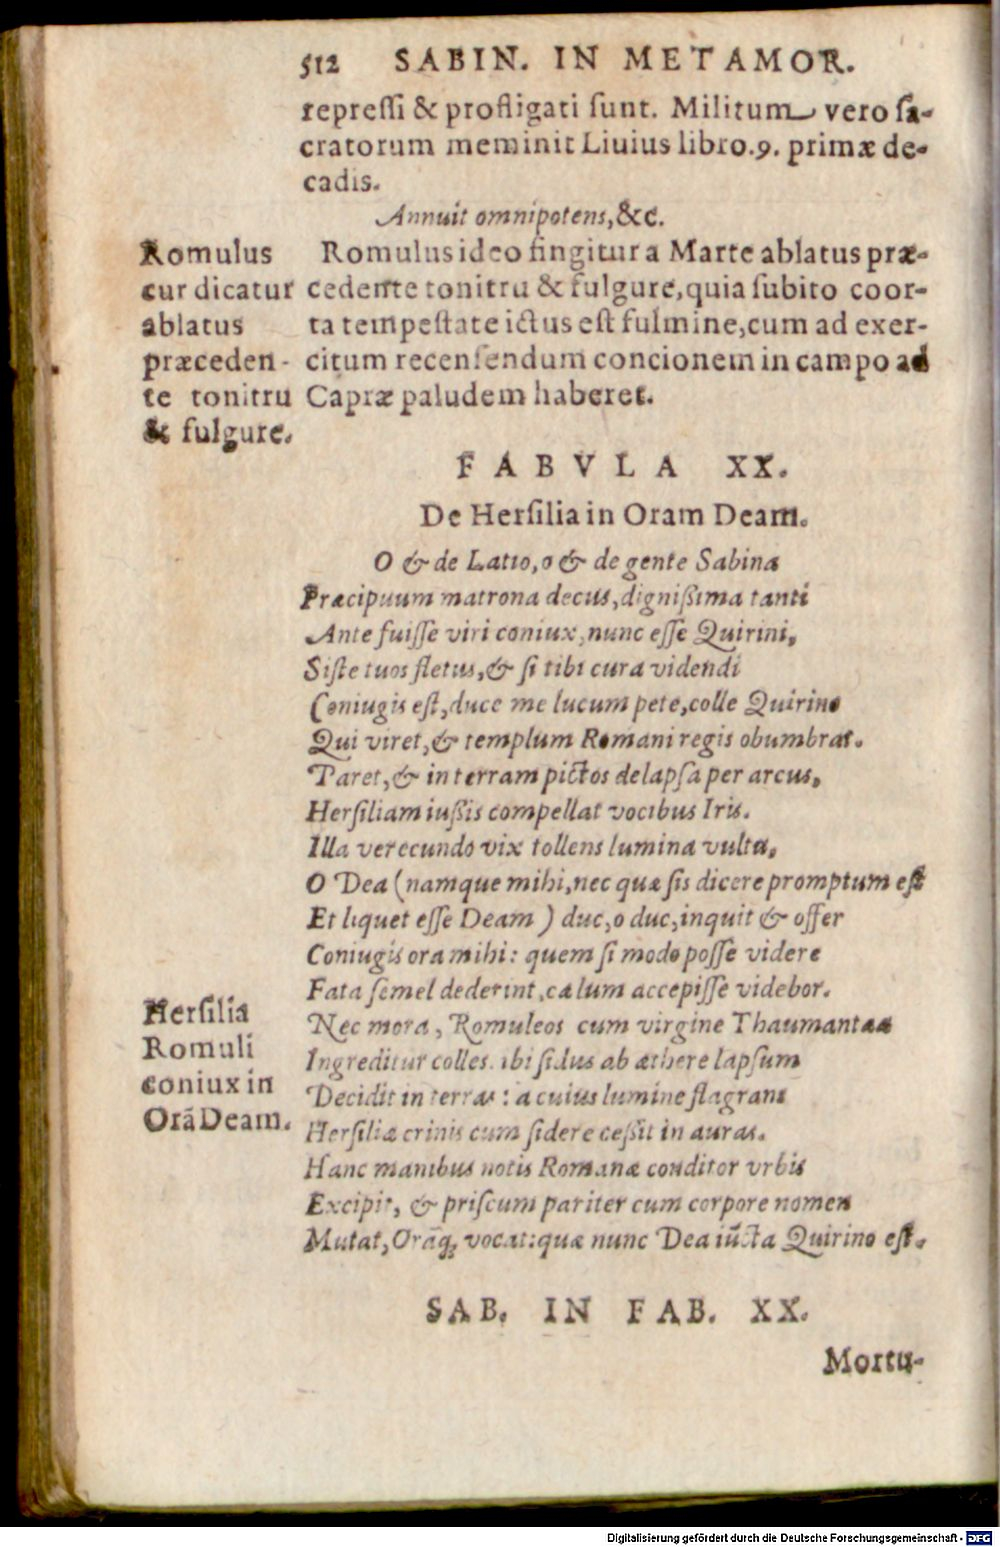 512 SABIN. IN METAMOR.
repreſſi & profligati ſunt. Militum vero ſa-
cratorum meminit Liuius libro.9. primæ de-
cadis.
Annuit omnipotens, &c.
Romulus
cur dicatur
ablatus
præceden-
te tonitru
& fulgure.
Romulus ideo fingitur a Marte ablatus præ-
cedente tonitru & fulgure, quia ſubito coor-
ta tempeſtate ictus eſt fulmine, cum ad exer-
citum recenſendum concionem in campo ad
Capræ paludem haberet.
FABVLA XX.
De Herſilia in Oram Deam.
O & de Latio, o & de gente Sabina
Præcipuum matrona decus, digniſsima tanti
Ante fuiſſe viri coniux, nunc eſſe Quirini,
Siſte tuos fletus, & ſi tibi cura videndi
Coniugis eſt, duce me lucum pete, colle Quirino
Qui viret, & templum Romani regis obumbrat.
Paret, & in terram pictos delapſa per arcus,
Herſiliam iuſsis compellat vocibus Iris.
Illa verecundo vix tollens lumina vultu,
O Dea (namque mihi, nec quæ ſis dicere promptum eſt
Et liquet eſſe Deam) duc, o duc, inquit & offer
Coniugis ora mihi: quem ſi modo poſſe videre
Fata ſemel dederint, cælum accepiſſe videbor.
Herſilia
Romuli
coniux in
Orã Deam.
Nec mora, Romuleos cum virgine Thaumantæa
Ingreditur colles. ibi ſidus ab æthere lapſum
Decidit in terras: a cuius lumine flagrans
Herſiliæ crinis cum ſidere ceſsit in auras.
Hanc manibus notis Romanæ conditor vrbis
Excipit, & priſcum pariter cum corpore nomen
Mutat, Orãq; vocat: quæ nunc Dea iũcta Quirino eſt.
SAB. IN FAB. XX.
Mortu-
Digitalisierung gefördert durch die Deutsche Forschungsgemeinschaft - DFG